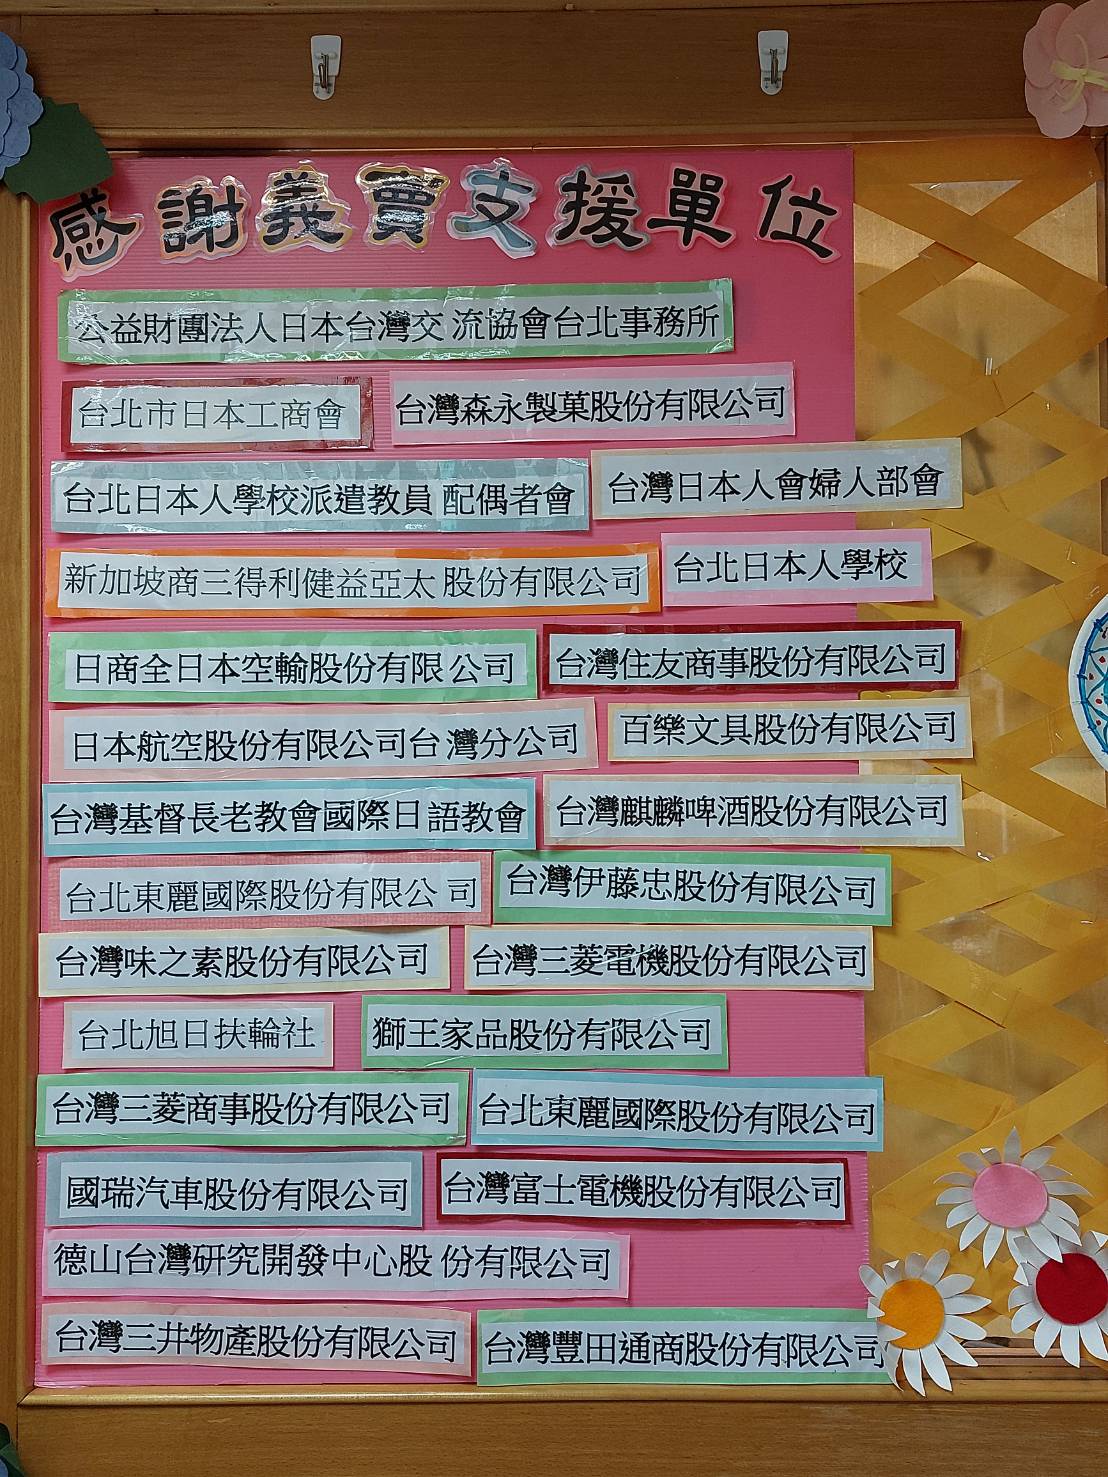 感謝義賣支援單位
公益財團法人日本台灣交流協會台北事務所
台北市日本工商會
台灣森永製菓股份有限公司
台北日本人學校派遣教員配偶者會
台灣日本人會婦人部會
新加坡商三得利健益亞太股份有限公司
台北日本人學校
日商全日本空輸股份有限公司
台灣住友商事股份有限公司
日本航空股份有限公司台灣分公司
百樂文具股份有限公司
台灣基督長老教會國際日語教會
台灣麒麟啤酒股份有限公司
台北東麗國際股份有限公司
台灣伊藤忠股份有限公司
台灣味之素股份有限公司
台灣三菱電機股份有限公司
台北旭日扶輪社
獅王家品股份有限公司
台灣三菱商事股份有限公司
台北東麗國際股份有限公司
國瑞汽車股份有限公司
台灣富士電機股份有限公司
德山台灣研究開發中心股份有限公司
台灣三井物產股份有限公司
台灣豐田通商股份有限公司